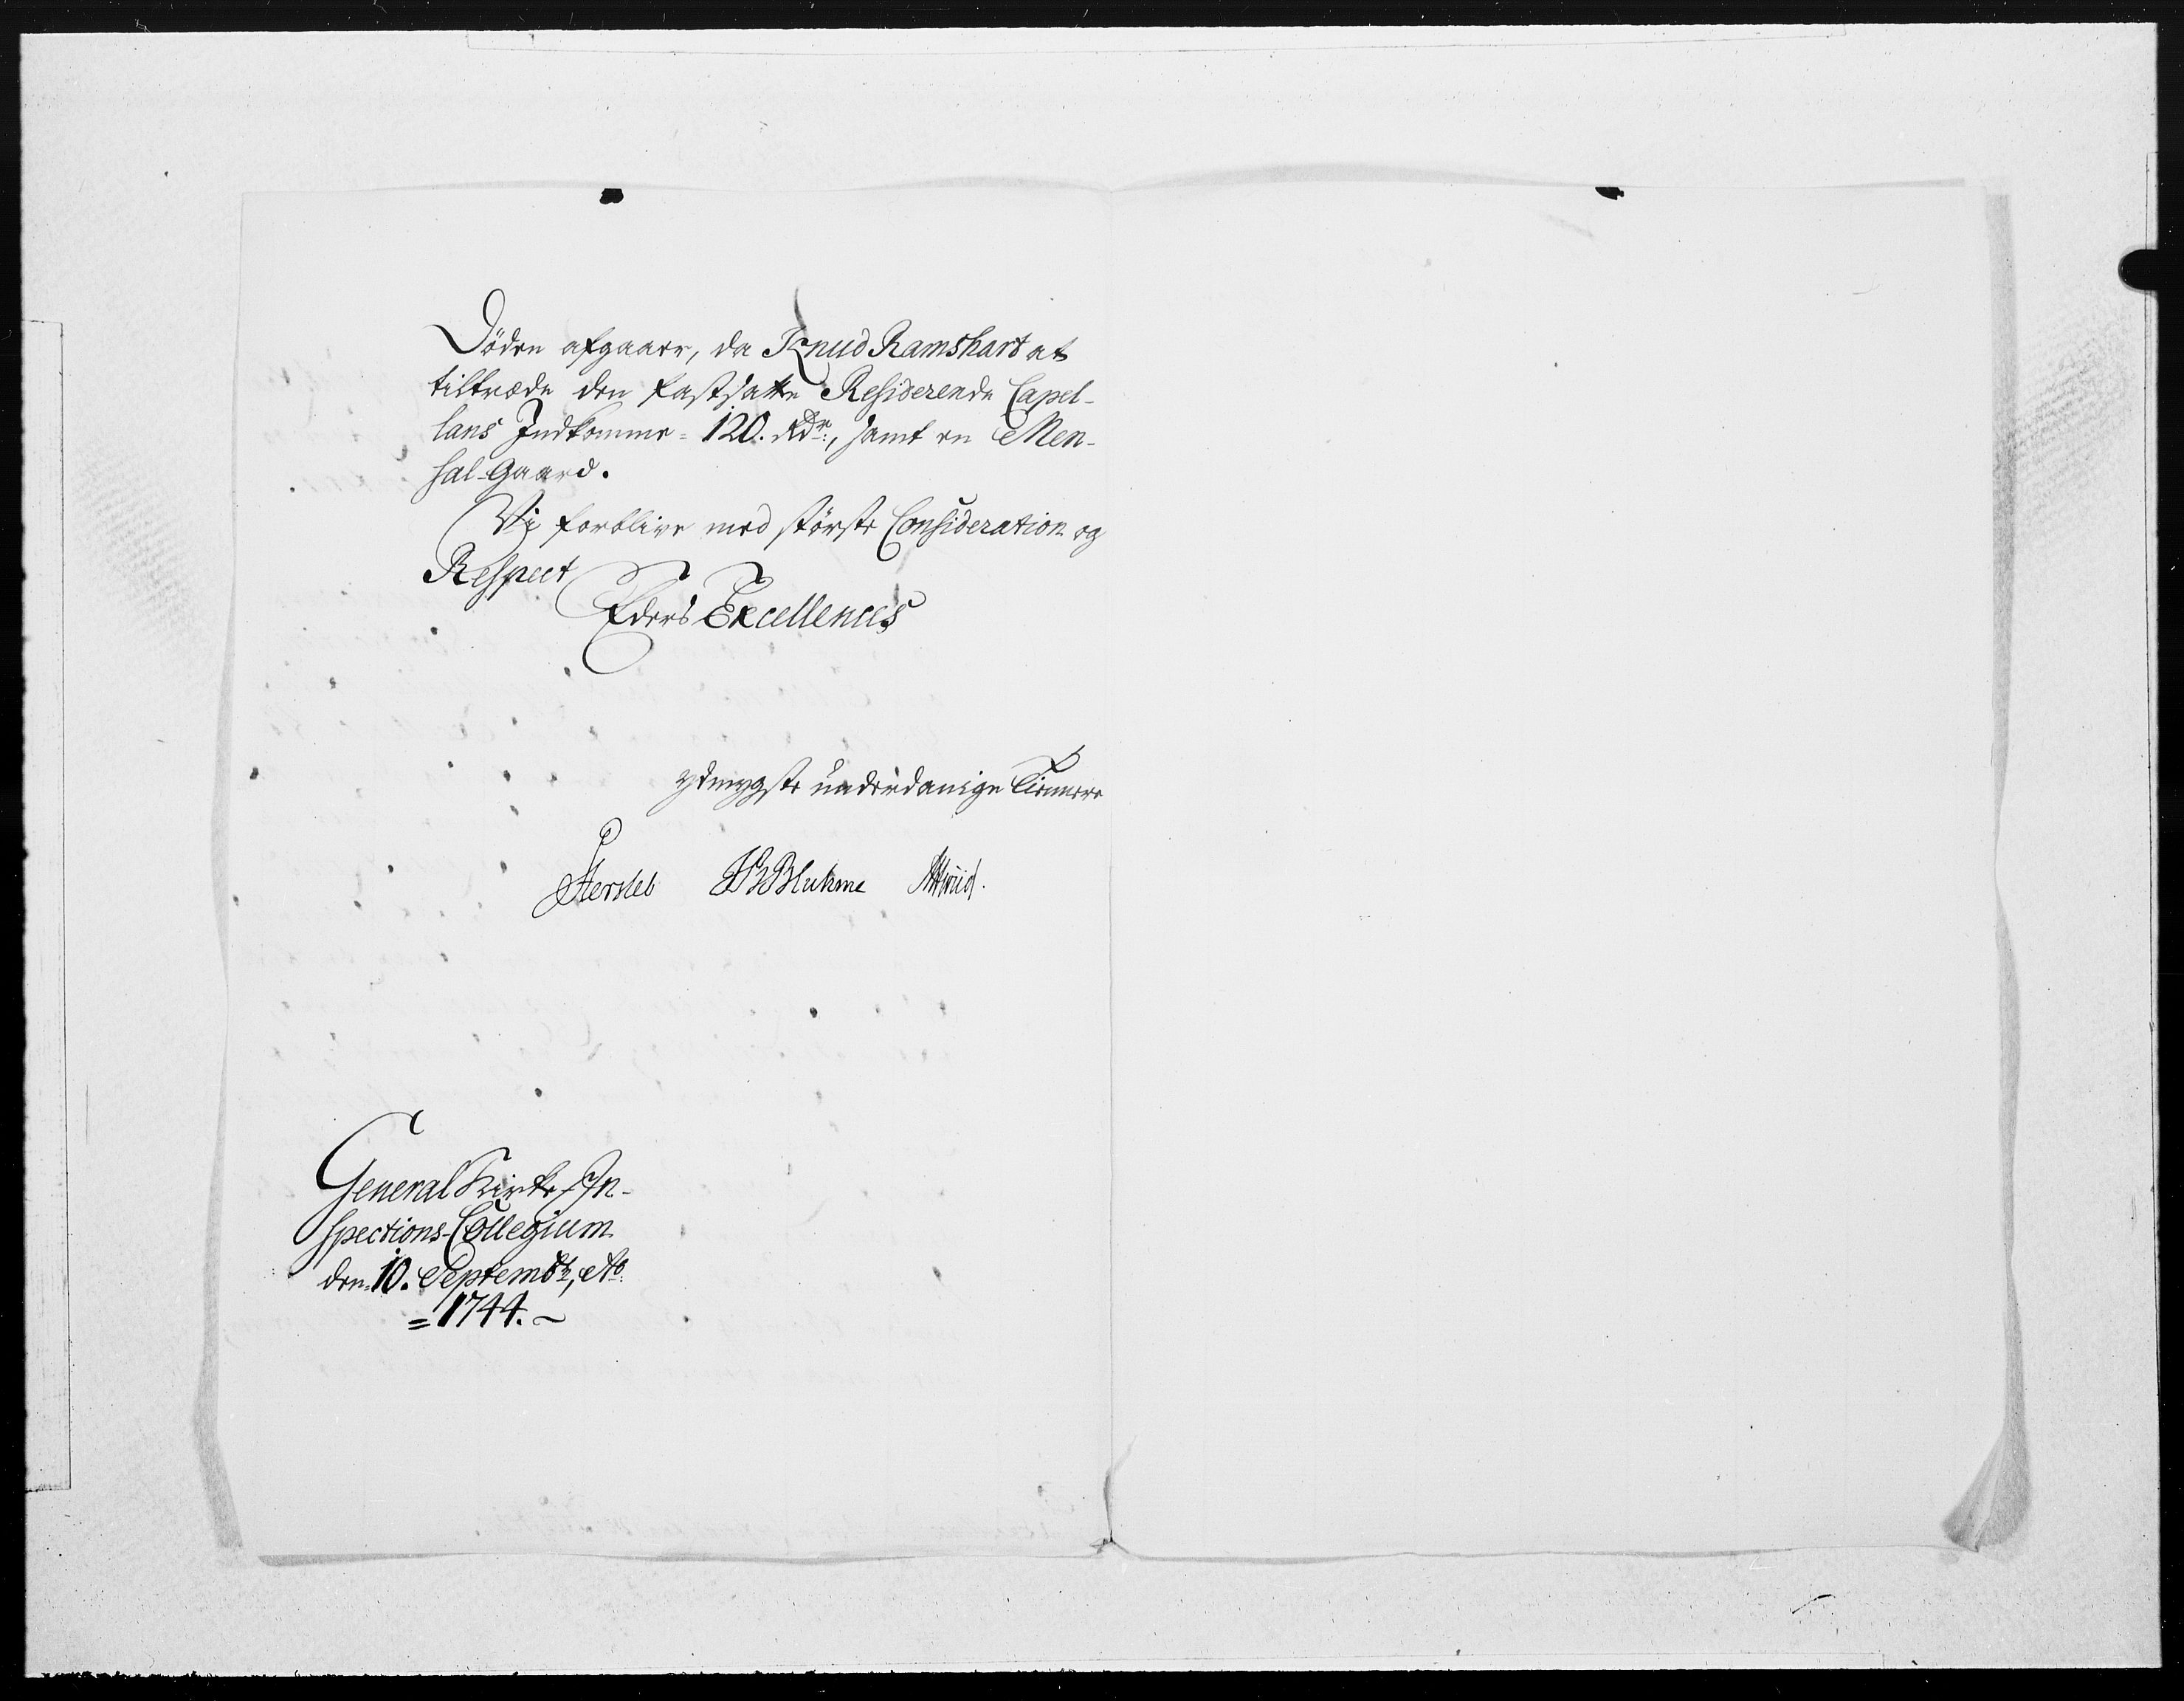 Döden afgaaer, da Knud Ramshart at
tiltræde den fastsatte Residerende Capel-
lans Indkomme = 120. Rdr:, samt en Men-
sal-Gaard.
Vi forblive med störste Consideration og
Respect
Eders Excellences
ydmygste underdanige Tienere
Hersleb BBluhme
General Kirke-In-
spections-Collegium
den 10. Septembr, Ao
= 1744. ~